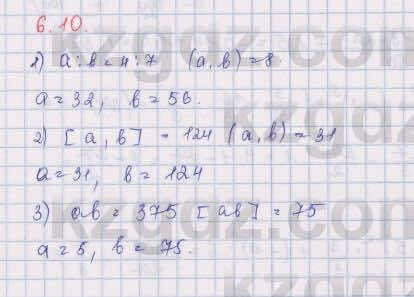 6.10.
1) a:b=4:7 (a,b)=8.
a=32, b=56.
2) [a,b] = 124 (a,b)=31
a=31, b=124
3) ab = 375 [ab] = 75
a=5, b=75.